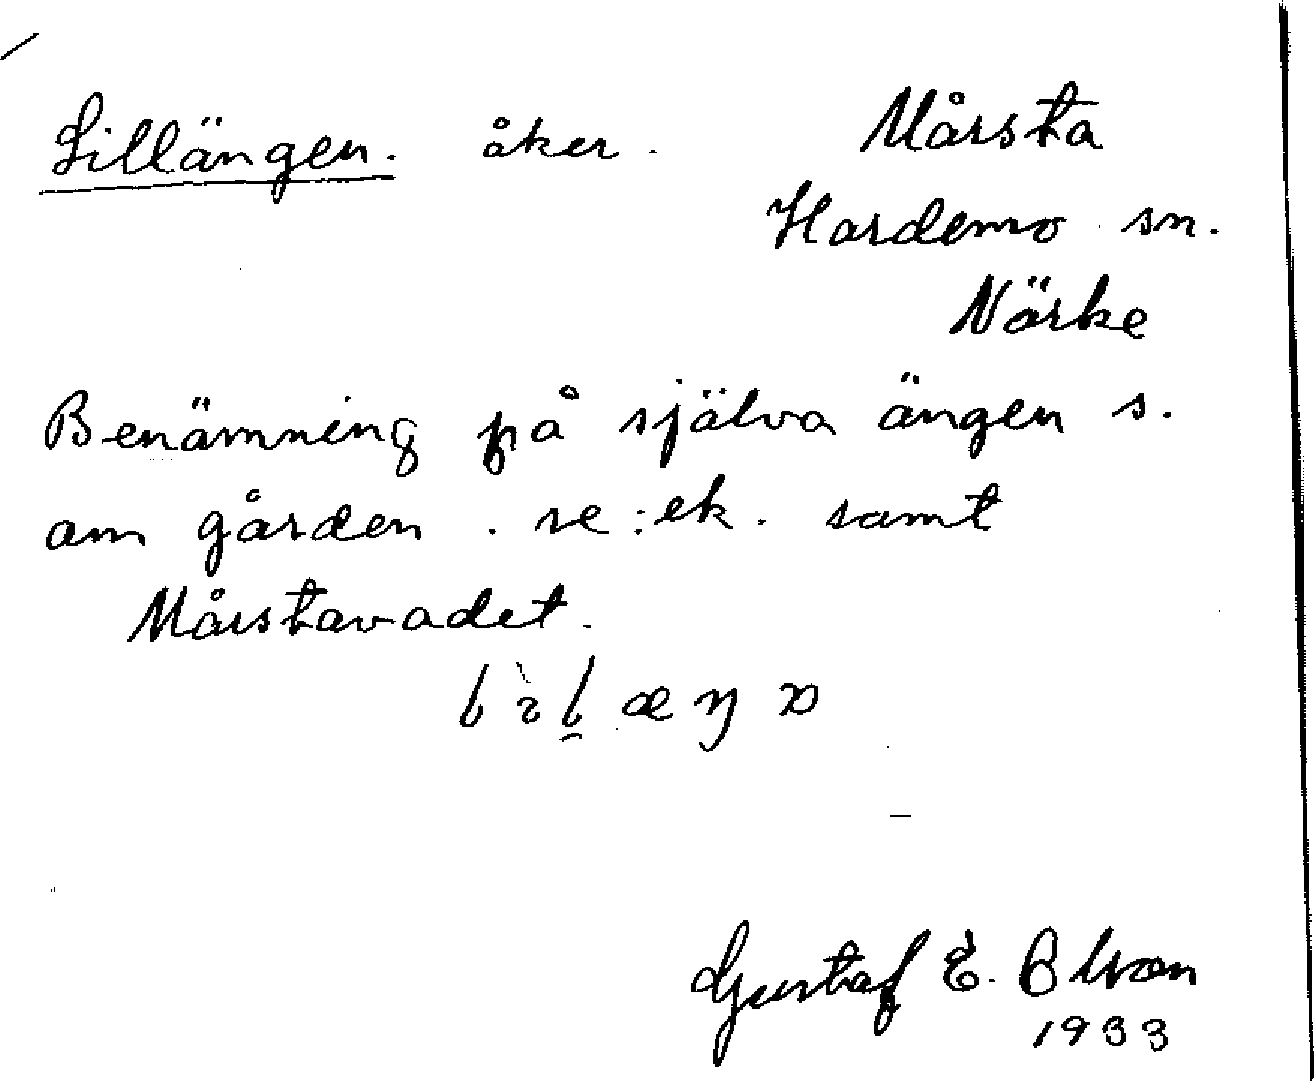 Lillängen. åker.
Mårsta
Hardemo sn.
Närke
Benämning på själva ängen s.
om gården. se: ek. samt
Mårstavadet.
Gustaf E.
1933